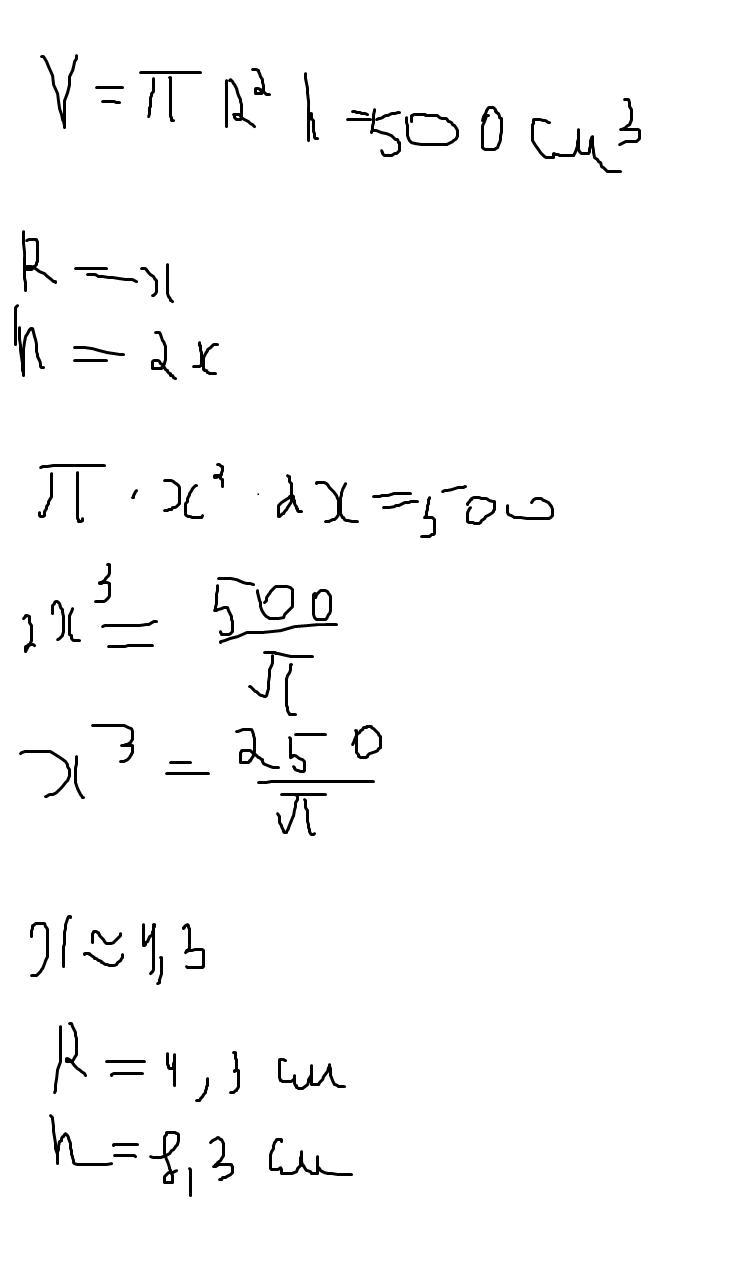 V = π R² h = 500 см³
R = x
h = 2x
π · x² · 2x = 500
2x³ = 500/π
x³ = 250/π
x ≈ 4,3
R = 4,3 см
h = 8,3 см